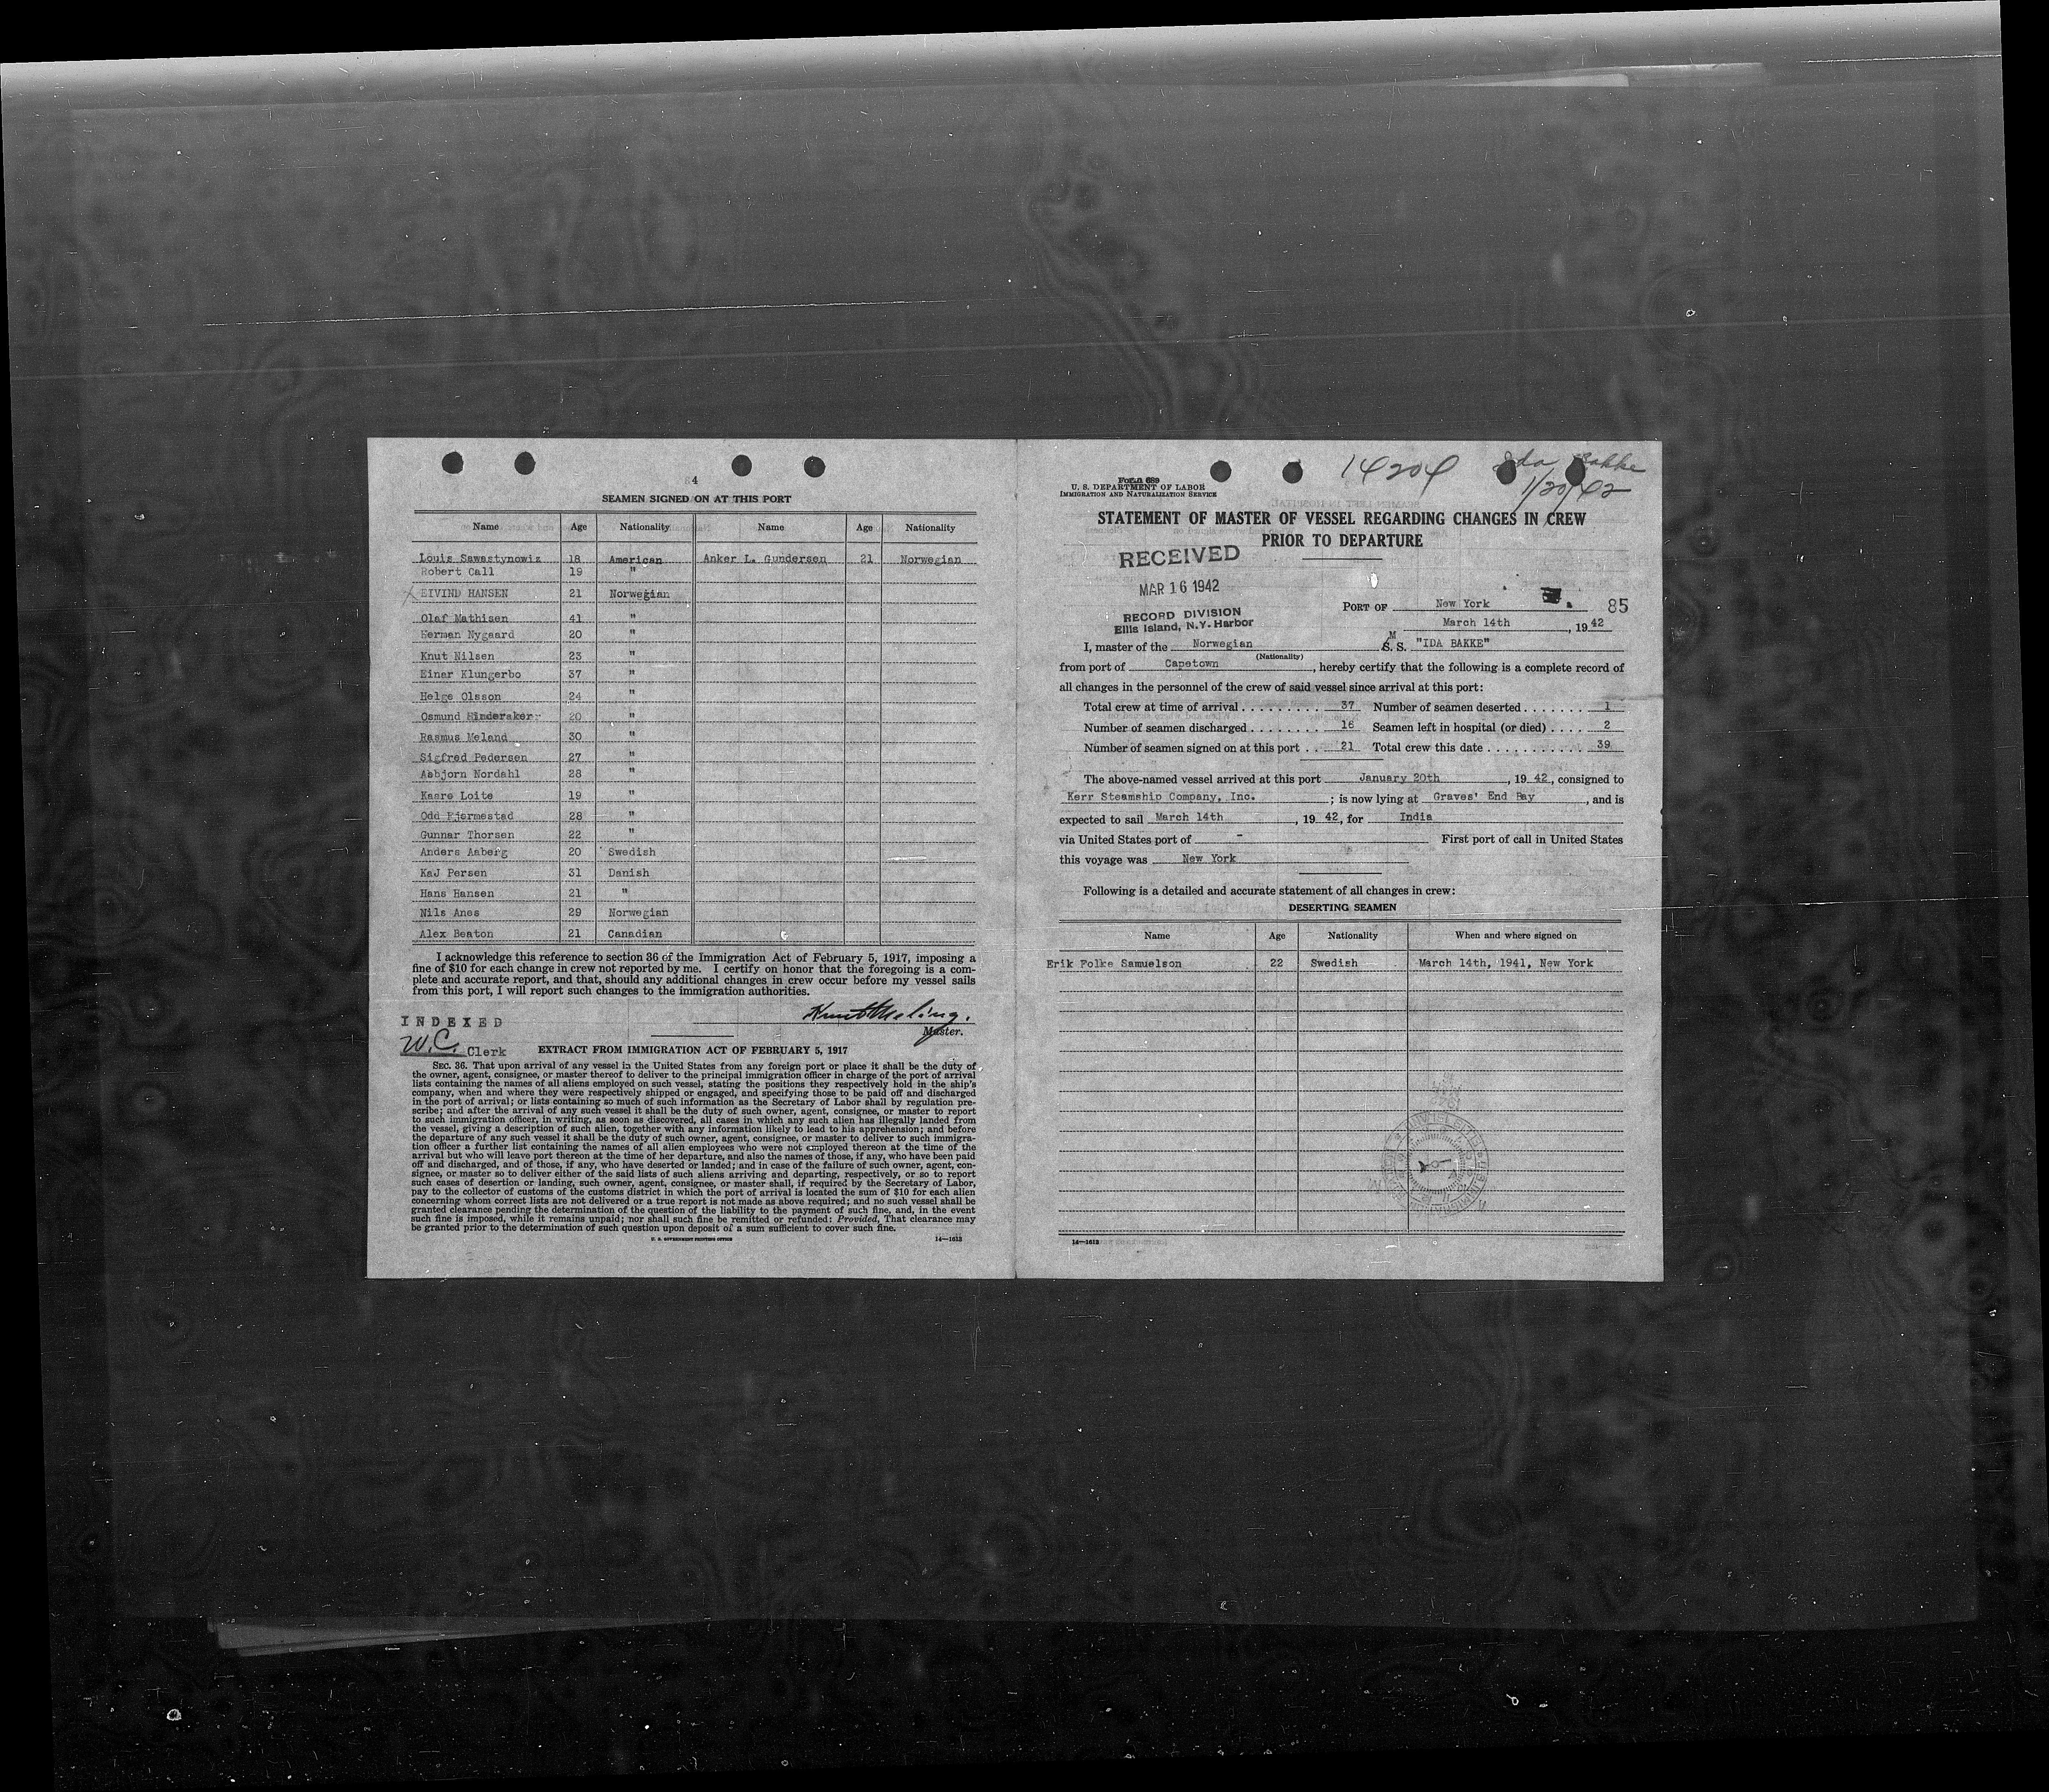 4
SEAMEN SIGNED ON AT THIS PORT
Name Age Nationality Name Age Nationality
Louis Sawastynowiz 18 American Anker L. Gundersen 21 Norwegian
Robert Call 19 "
EIVIND HANSEN 21 Norwegian
Olaf Mathisen 41 "
Herman Nygaard 20 "
Knut Nilsen 23 "
Einar Klungerbo 37 "
Helge Olsson 24 "
Osmund 20 "
Rasmus Meland 30 "
Sigfred Pedersen 27 "
Asbjorn Nordahl 28 "
Kaare Loite 19 "
Odd Fjermestad 28 "
Gunnar Thorsen 22 "
Anders Aaberg 20 Swedish
KaJ Persen 31 Danish
Hans Hansen 21 "
Nils Anes 29 Norwegian
Alex Beaton 21 Canadian
I acknowledge this reference to section 36 of the Immigration Act of February 5, 1917, imposing a
fine of $10 for each change in crew not reported by me. I certify on honor that the foregoing is a com-
plete and accurate report, and that, should any additional changes in crew occur before my vessel sails
from this port, I will report such changes to the immigration authorities.
Master.
INDEXED
W.C. Clerk
EXTRACT FROM IMMIGRATION ACT OF FEBRUARY 5, 1917
SEC. 36. That upon arrival of any vessel in the United States from any foreign port or place it shall be the duty of
the owner, agent, consignee, or master thereof to deliver to the principal immigration officer in charge of the port of arrival
lists containing the names of all aliens employed on such vessel, stating the positions they respectively hold in the ship's
company, when and where they were respectively shipped or engaged, and specifying those to be paid off and discharged
in the port of arrival; or lists containing so much of such information as the Secretary of Labor shall by regulation pre-
scribe; and after the arrival of any such vessel it shall be the duty of such owner, agent, consignee, or master to report
to such immigration officer, in writing, as soon as discovered, all cases in which any such alien has illegally landed from
the vessel, giving a description of such alien, together with any information likely to lead to his apprehension; and before
the departure of any such vessel it shall be the duty of such owner, agent, consignee, or master to deliver to such immigra-
tion officer a further list containing the names of all alien employees who were not employed thereon at the time of the
arrival but who will leave port thereon at the time of her departure, and also the names of those, if any, who have been paid
off and discharged, and of those, if any, who have deserted or landed; and in case of the failure of such owner, agent, con-
signee, or master so to deliver either of the said lists of such aliens arriving and departing, respectively, or so to report
such cases of desertion or landing, such owner, agent, consignee, or master shall, if required by the Secretary of Labor,
pay to the collector of customs of the customs district in which the port of arrival is located the sum of $10 for each alien
concerning whom correct lists are not delivered or a true report is not made as above required; and no such vessel shall be
granted clearance pending the determination of the question of the liability to the payment of such fine, and, in the event
such fine is imposed, while it remains unpaid; nor shall such fine be remitted or refunded: Provided, That clearance may
be granted prior to the determination of such question upon deposit of a sum sufficient to cover such fine.
U. S. GOVERNMENT PRINTING OFFICE 14—1613
14204 Ida Bakke
1/20/42
Form 689
U. S. DEPARTMENT OF LABOR
IMMIGRATION AND NATURALIZATION SERVICE
STATEMENT OF MASTER OF VESSEL REGARDING CHANGES IN CREW
PRIOR TO DEPARTURE
RECEIVED
MAR 16 1942
RECORD DIVISION
Ellis Island, N.Y. Harbor
PORT OF New York 85
March 14th, 1942
I, master of the Norwegian M S. S. "IDA BAKKE"
(Nationality)
from port of Capetown, hereby certify that the following is a complete record of
all changes in the personnel of the crew of said vessel since arrival at this port:
Total crew at time of arrival ......... 37 Number of seamen deserted ....... 1
Number of seamen discharged ........ 16 Seamen left in hospital (or died) .... 2
Number of seamen signed on at this port .. 21 Total crew this date ........... 39
The above-named vessel arrived at this port January 20th, 1942, consigned to
Kerr Steamship Company, Inc.; is now lying at Graves' End Bay, and is
expected to sail March 14th, 1942, for India
via United States port of - First port of call in United States
this voyage was New York
Following is a detailed and accurate statement of all changes in crew:
DESERTING SEAMEN
Name Age Nationality When and where signed on
Erik Folke Samuelson 22 Swedish March 14th, 1941, New York
14—1613